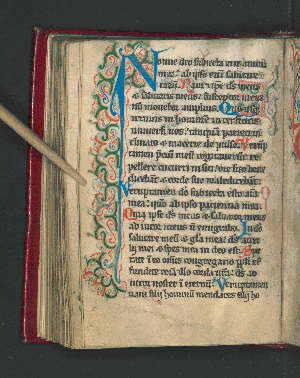 Nonne deo subiecta erit anima
mea: ab ipso enim salutare
meum. Nam et ipse deus meus
et salutaris meus: susceptor meus
non movebor amplius. Quousque
irruitis in hominem interficitis
universi vos: tanquam parieti in
clinato et macerie depulse. Verum
tamen precium meum cogitaverunt re
pellere cucurri in siti: ore suo bene
dicebant et corde suo maledicebant.
Verumptamen deo subiecta esto anima
mea: quoniam ab ipso patientia mea.
Quia ipse deus meus et salvator meus
adiutor meus non emigrabo. In deo
salutare meum et gloria mea: deus auxi
lii mei et spes mea in deo est. Spe
rate in eo omnis congregatio populi ef
fundite coram illo corda vestra: deus ad
iutor noster in eternum. Verumptamen
vani filii hominum mendaces filii ho